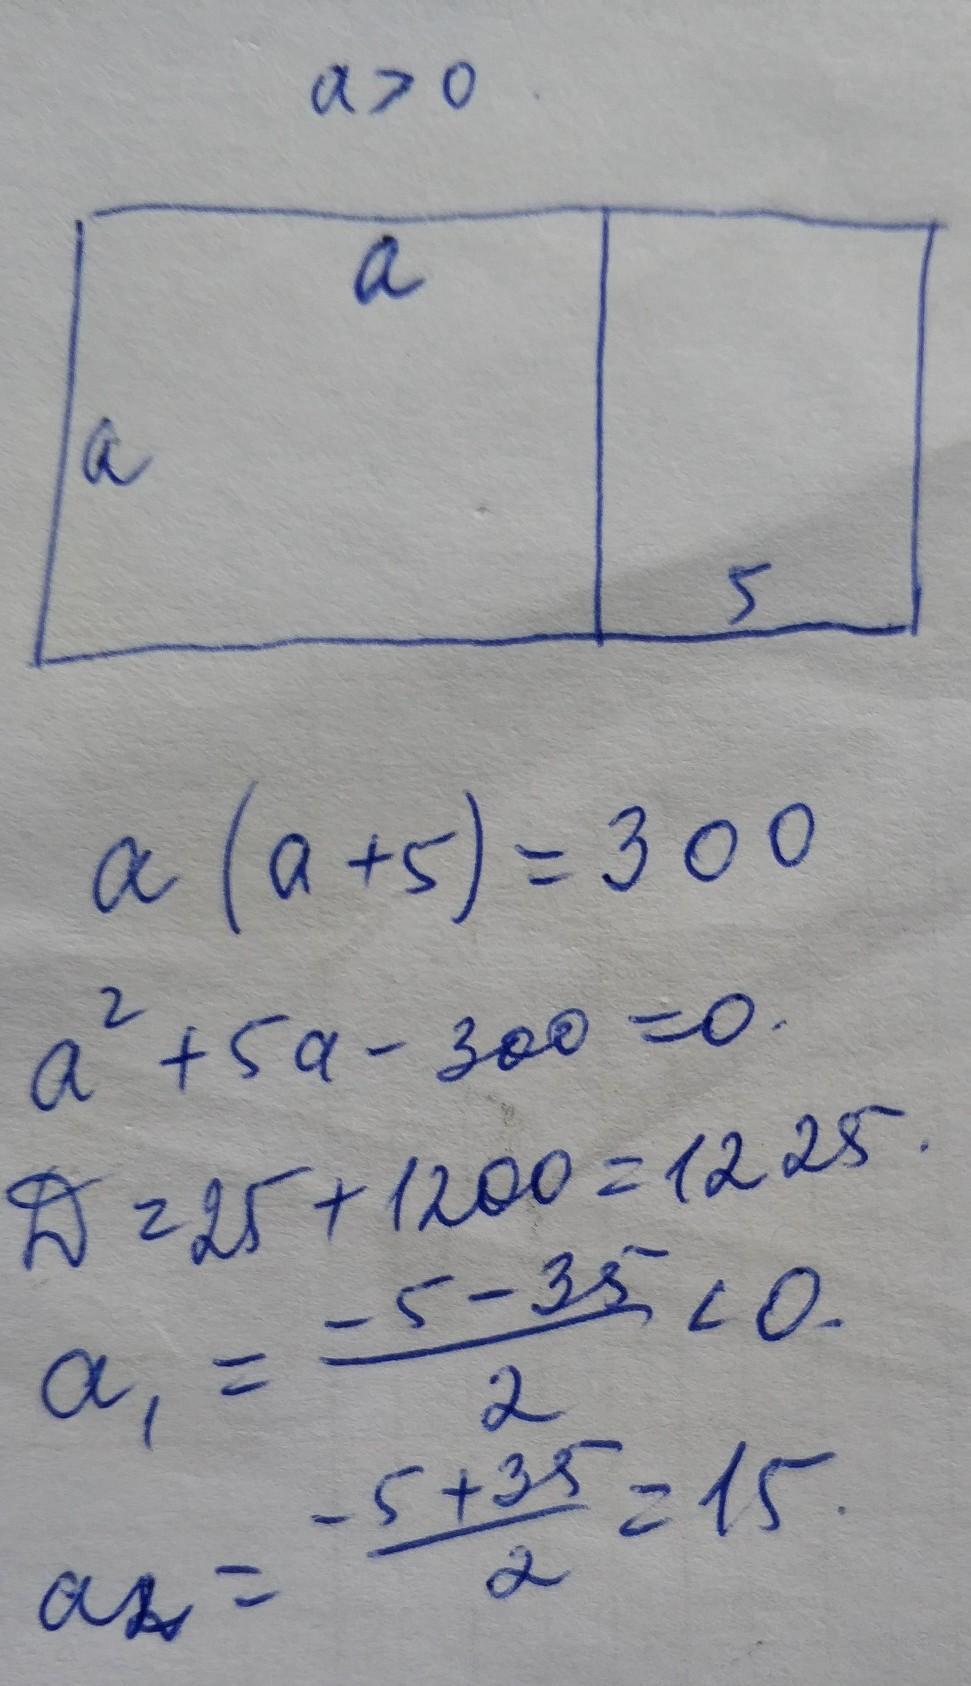 a > 0
a
a
5
a (a + 5) = 300
a² + 5a - 300 = 0.
D = 25 + 1200 = 1225.
a₁ = (-5 - 35)/2 < 0.
a₂ = (-5 + 35)/2 = 15.